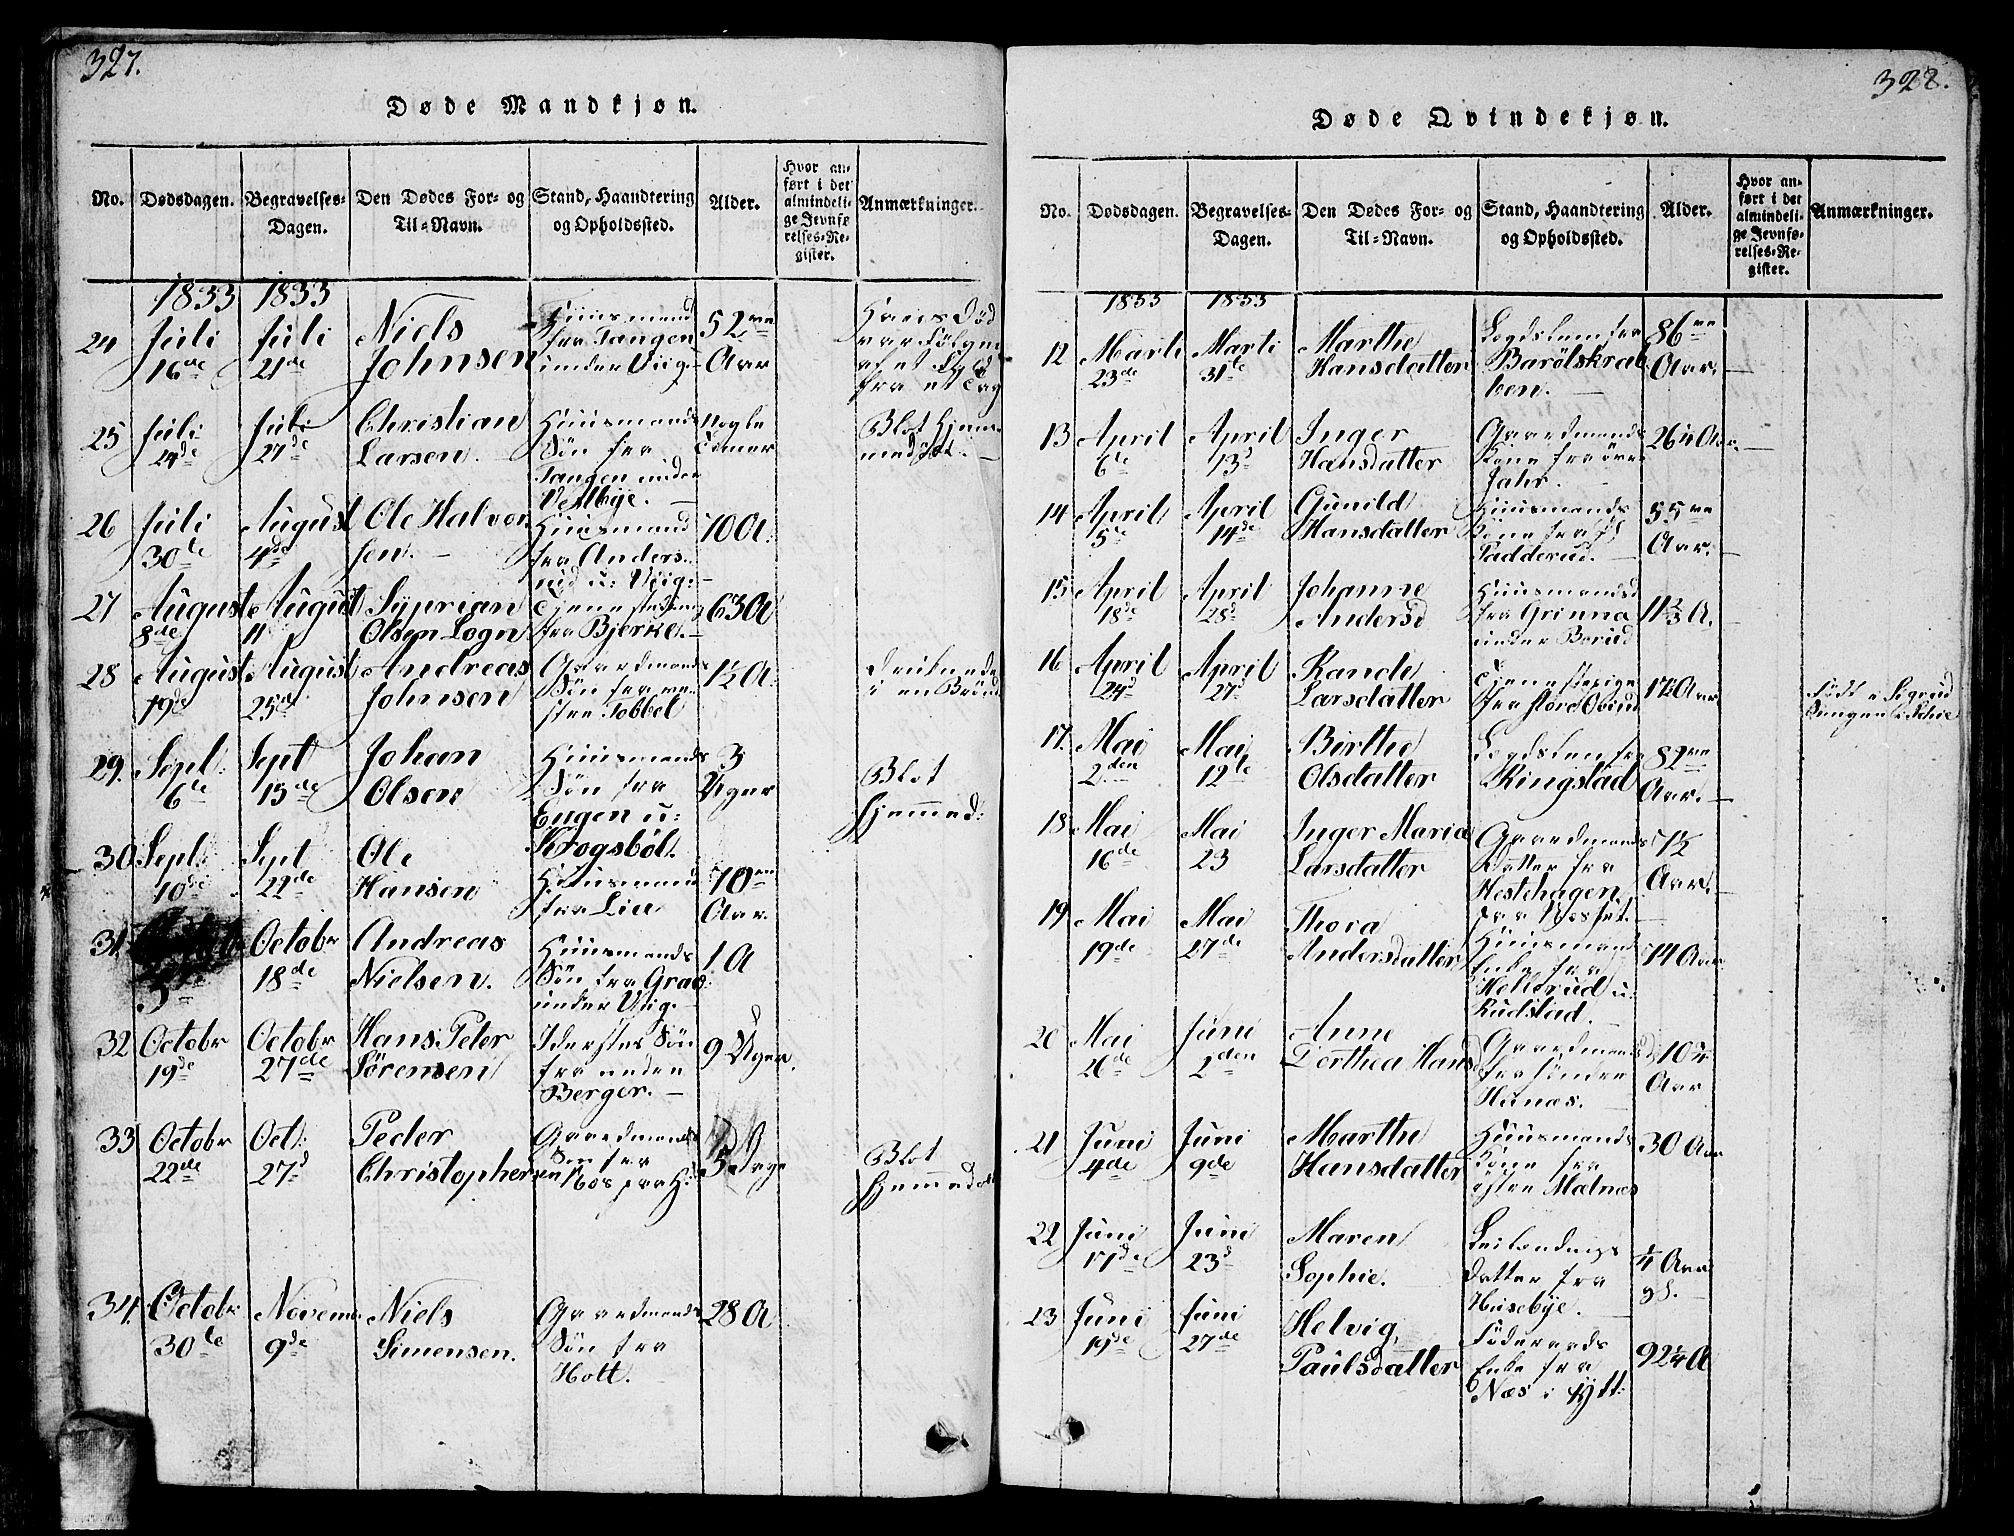 327.
Døde Mandkjøn.
No. Dødsdagen. Begravelses-Dagen. Den Dødes For- og Til-Navn. Stand, Haandtering og Opholdssted. Alder. Hvor anført i det almindelige Jevnførelses-Register. Anmærkninger.
1833 1833
24 Juli 16de Juli 21de Niels Johnsen Huusmand fra Tangen under Viig 52 Aar Hans Død var følgen af et fra et Tag
25 Juli 24de Juli 27de Christian Larsen. Huusmands Søn fra Tangen under Vestbye. nogle Timer Blot Hjemmedøbt.
26 Juli 30de August 4de Ole Halvorsen. Huusmand fra Andersrud u: Viig. 70 A.
27 August 8de August 11 Syprian Olsen Logn fra Bjerke. 63 A
28 August 19de August 25de Andreas Johnsen Gaardmands Søn fra vestre Tobbel 1½ A. Druknede i en Brønd
29. Sept. 6de Sept 15de Johan Olsen Huusmands Søn fra Eugen u: Krogsböl. 3 Uger Blot hjemmed:
30 Sept. 10de Sept 22de Ole Hansen Huusmand fra Lier 70 Aar
31. 5te Octobr 18de Andreas Nielsen. Huusmands Søn fra Grav under Viig. 1 A
32 Octobr 19de Octobr 27de Hans Peter Sörensen Søn fra Berger. 9 Uger.
33 Octobr 22de Oct: 27d Peder Christophersen Gaardmands Søn fra 5 Dage Blot hjemmedøbt
34. Octobr 30de Novem 9de Niels Simensen. Gaardmands Søn fra Hott. 28 A
328.
Døde Qvindekjøn.
No. Dødsdagen. Begravelses-Dagen. Den Dødes For- og Til-Navn. Stand, Haandtering og Opholdssted. Alder. Hvor anført i det almindelige Jevnførelses-Register. Anmærkninger.
1833 1833
12 Marti 23de Marti 31te Marthe Hansdatter Legdslem fra Barölskrakken. 86 Aar.
13 April 6de April 13d Inger Hansdatter Gaardmands Kone fra övre Jahr. 26¼ Aar.
14 April 5de April 14de Gunild Hansdatter Huusmands Kone fra Padderud. 55 Aar.
15 April 18de April 28d Johanne Andersd Huusmandsd fra Grinna under Borud 11⅔ A.
16 April 24d April 27d Rande Larsdatter Tjenestepige fra store Obrud 17½ Aar Født i Sigrud
17. Mai 2den Mai 12te Birthe Olsdatter Legdslem fra Ringstad 82 Aar.
18 Mai 16de Mai 23 Inger Maria Larsdatter Gaardmands Datter fra Hestehagen. 7½ Aar.
19 Mai 19de Mai 27de Thora Andersdatter Huusmands Enke fra Helterud u: Rudstad. 74 Aar
20 Mai 26de Juni 2den Anne Dorthea Hansd Gaardmands fra söndre Hunæs. 10¾ Aar
21 Juni 4de Juni 9de Marthe Hansdatter Huusmands Kone fra østre Mælnæs 30 Aar
22 Juni 17de Juni 23d Maren Sophie. Leilændings Datter fra Husebye. ¼ Aar gl.
23 Juni 19de Juni 27de Helvig Paulsdatter Föderaads Enke fra Næs i Hytt: 92¼ A